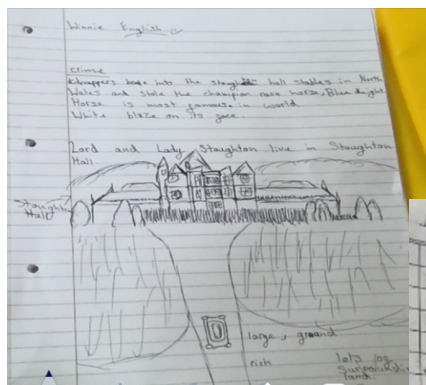 Winnie English
Crime
Kidnappers broke into the hall stables in North
Wales and stole the champion race horse, Blue
Horse is most in world.
White blaze on its face.
Lord and Lady Staughton live in Staughton
Hall
Staughton
Hall
large, ground
rich
lots of
land